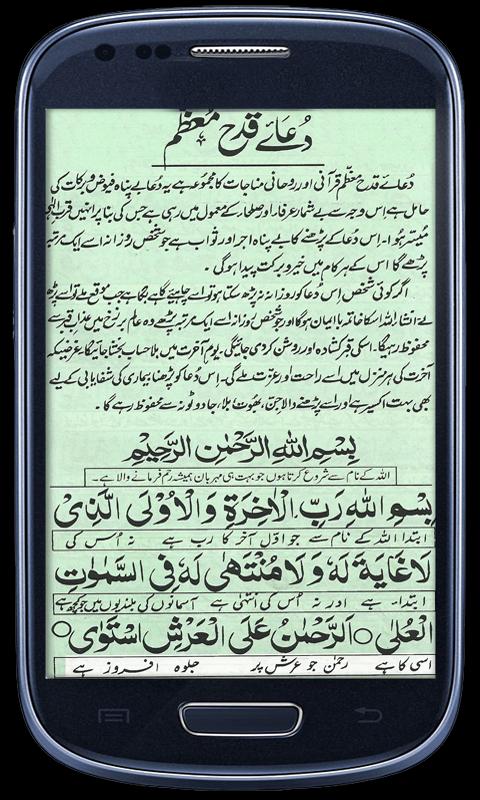 دُعائے قدح معظّم
دُعائے قدح معظّم قرآنی اور روحانی مناجات کا مجموعہ ہے یہ دُعا بے پناہ فیوض و برکات کی
حامل ہے اس وجہ سے بے شمار عرفاء اور صلحاء کے معمول میں رہی ہے جس کی بنا پر انہیں قرب الٰہی
میسّر ہوا۔ اس دُعا کے پڑھنے کا بے پناہ اجر اور ثواب ہے جو شخص روزانہ اسے ایک مرتبہ
پڑھے گا اس کے ہر کام میں خیر و برکت پیدا ہو گی۔
اگر کوئی شخص اِس دُعا کو روزانہ نہ پڑھ سکتا ہو تو اسے چاہیئے گاہے بگاہے جب موقع ملے تو اسے پڑھ
لے انشاء اللہ اسکا خاتمہ با ایمان ہو گا اور جو شخص روزانہ اسے ایک مرتبہ پڑھے وہ عالم برزخ میں عذابِ قبر سے
محفوظ رہیگا۔ اسکی قبر کشادہ اور روشن کر دی جائیگی۔ یوم آخرت میں بلا حساب بخشا جائیگا، غرضیکہ
آخرت کی ہر منزل میں اسے راحت اور عزّت ملے گی۔ اِس دُعا کو پڑھنا بیماری کی شفایابی کے لیے
بھی بہت اکسیر ہے اور اسے پڑھنے والا جن، بھوت بلا، جادو ٹونہ سے محفوظ رہے گا۔
بِسْمِ اللهِ الرَّحْمٰنِ الرَّحِيْمِ
اللہ کے نام سے شروع کرتا ہوں جو بہت ہی مہربان ہمیشہ رحم فرمانے والا ہے۔
بِسْمِ اللهِ رَبِّ الْاٰخِرَةِ وَالْاُوْلٰى الَّذِىْ
ابتدا اللہ کے نام سے جو اوّل آخر کا رب ہے نہ اُس کی
لَا غَايَةَ لَهٗ وَلَا مُنْتَهٰى لَهٗ فِى السَّمٰوٰتِ
ابتداء ہے اور نہ اُس کی انتہیٰ ہے آسمانوں کی بلندیوں میں جو کچھ ہے
الْعُلٰى ○ اَلرَّحْمٰنُ عَلَى الْعَرْشِ اسْتَوٰى ○
اسی کا ہے رحمٰن جو عرش پر جلوہ افروز ہے